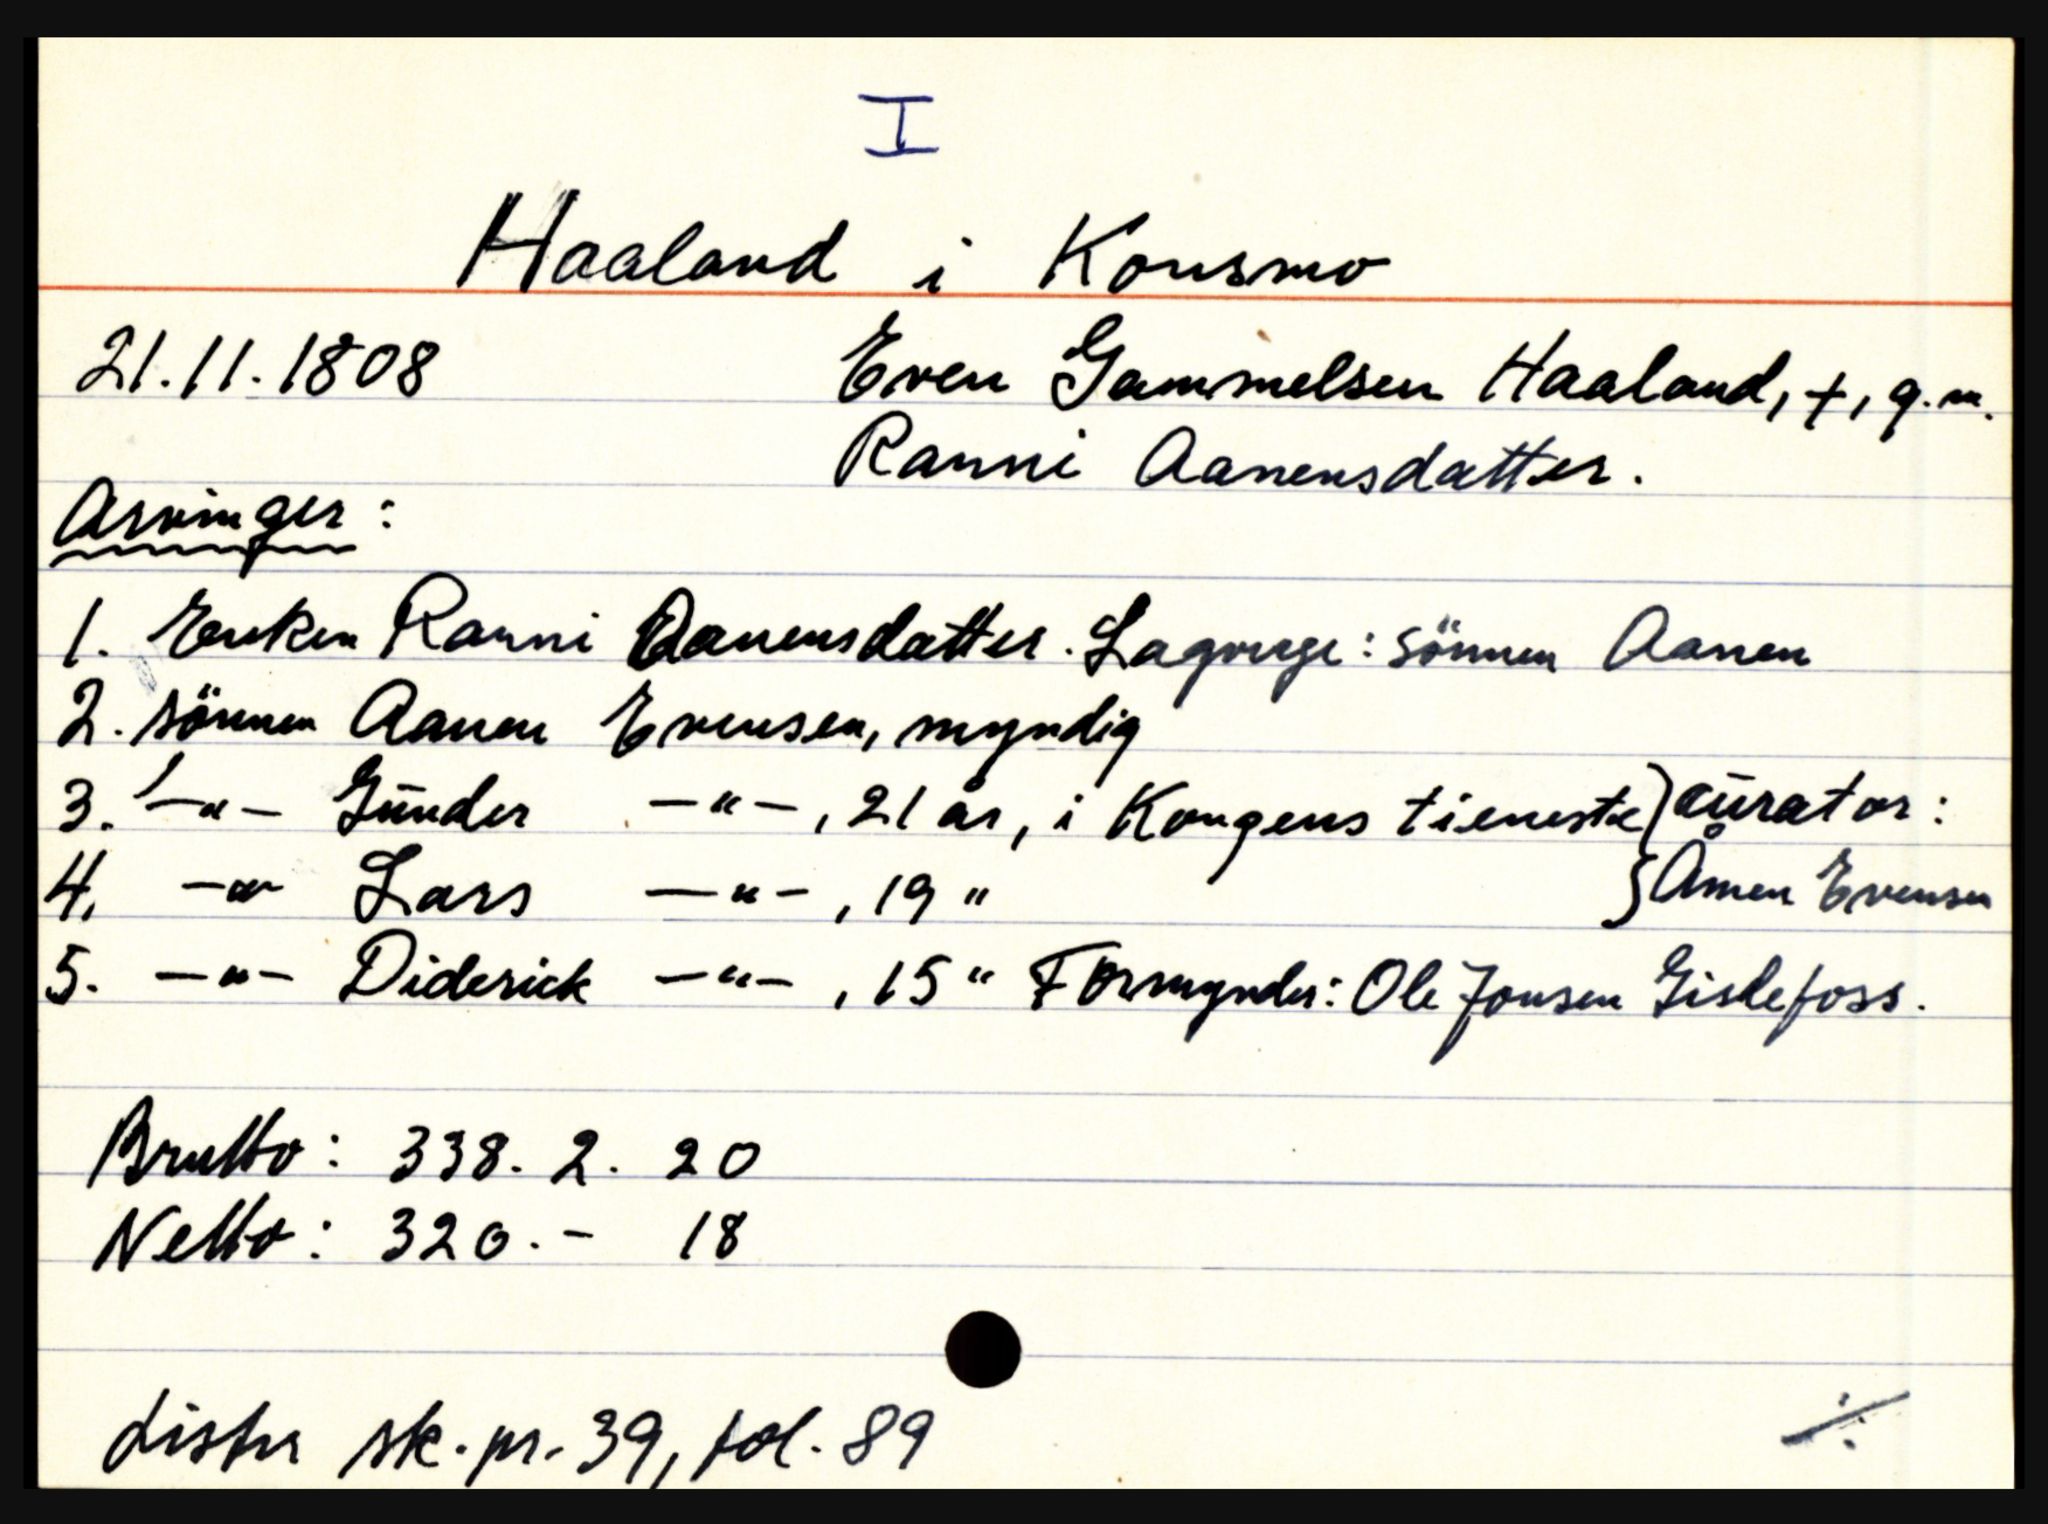 I
Haaland i Konsmo
21.11.1808
Even Gammelsen Haaland, +, g.m.
Ranni Aanensdatter.
Arvinger:
1. Enken Ranni Aanensdatter. Lagverge: sönnen Aanen
2. sönnen Aanen Evensen, myndig
3. -"- Günder -"-, 21 år, i Kongens tieneste } cūrator:
4. -"- Lars -"-, 19 " } Ånen Evensen
5. -"- Diderick -"-, 15 " Formynder: Ole Jonsen Gislefoss.
Brutto: 338. 2. 20
Netto: 320. - 18
Lister sk. pr. 39, fol. 89
÷